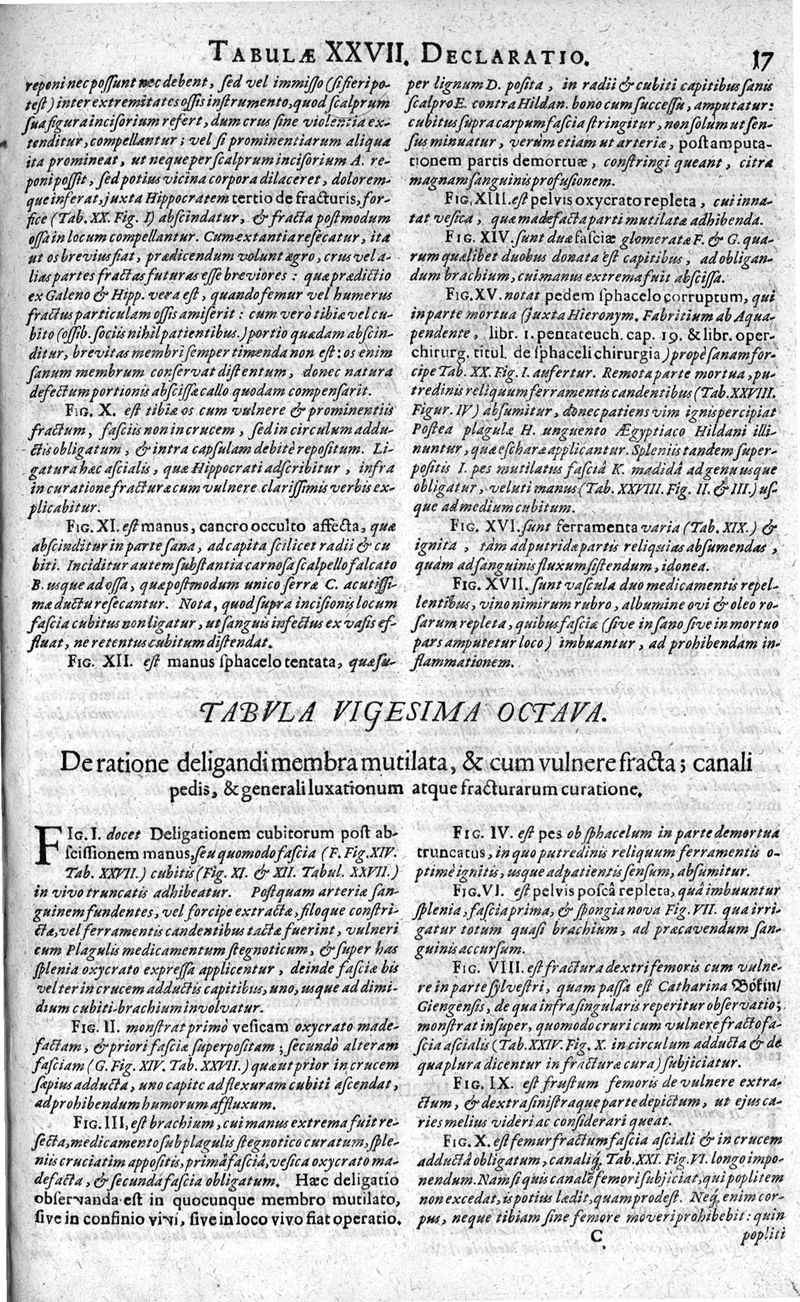 TABULÆ XXVII. DECLARATIO. 17
reponi nec possunt nec debent, sed vel immisso (si fieri po-
test) inter extremitates ossis instrumento, quod scalprum
sua figura incisorium refert, dum crus sine violentia ex-
tenditur, compellantur; vel si prominentiarum aliqua
ita promineat, ut neque per scalprum incisorium A. re-
poni possit, sed potius vicina corpora dilaceret, dolorem-
que inferat, juxta Hippocratem tertio de fracturis, for-
fice (Tab. XX. Fig. I) abscindatur, & fracta postmodum
ossa in locum compellantur. Cum extantia resecatur, ita
ut os brevius fiat, prædicendum volunt ægro, crus vel a-
lias partes fractas futuras esse breviores: quæ prædictio
ex Galeno & Hipp. vera est, quando femur vel humerus
fractus particulam ossis amiserit: cum verò tibiæ vel cu-
bito (ossib. sociis nihil patientibus.) portio quædam abscin-
ditur, brevitas membri semper timenda non est: os enim
sanum membrum conservat distentum, donec natura
defectum portionis abscissæ callo quodam compensarit.
FIG. X. est tibiæ os cum vulnere & prominentiis
fractum, fasciis non in crucem, sed in circulum addu-
ctis obligatum, & intra capsulam debitè repositum. Li-
gatura hæc ascialis, quæ Hippocrati adscribitur, infra
in curatione fracturæ cum vulnere clarissimis verbis ex-
plicabitur.
FIG. XI. est manus, cancro occulto affecta, quæ
abscinditur in parte sana, ad capita scilicet radii & cu
biti. Inciditur autem substantia carnosa scalpello falcato
B. usque ad ossa, quæ postmodum unico serræ C. acutissi-
mæ ductu resecantur. Nota, quod supra incisionis locum
fascia cubitus non ligatur, ut sanguis infectus ex vasis ef-
fluat, ne retentus cubitum distendat.
FIG. XII. est manus sphacelo tentata, quæ su-
per lignum D. posita, in radii & cubiti capitibus sanis
scalpro E. contra Hildan. bono cum successu, amputatur:
cubitus supra carpum fascia stringitur, non solum ut sen-
sus minuatur, verum etiam ut arteriæ, post amputa-
tionem partis demortuæ, constringi queant, citra
magnam sanguinis profusionem.
FIG. XIII. est pelvis oxycrato repleta, cui inna-
tat vesica, quæ madefacta parti mutilatæ adhibenda.
FIG. XIV. sunt duæ fasciæ glomeratæ F. & G. qua-
rum quælibet duobus donata est capitibus, ad obligan-
dum brachium, cui manus extrema fuit abscissa.
FIG. XV. notat pedem sphacelo corruptum, qui
in parte mortua (juxta Hieronym. Fabritium ab Aqua-
pendente, libr. 1. pentateuch. cap. 19. & libr. oper-
chirurg. titul. de sphaceli chirurgia) propè sanam for-
cipe Tab. XX. Fig. I. aufertur. Remota parte mortua, pu-
tredinis reliquum ferramentis candentibus (Tab. XXVIII.
Figur. IV) absumitur, donec patiens vim ignis percipiat
Postea plagulæ H. unguento Ægyptiaco Hildani illi-
nuntur, quæ escharæ applicantur. Spleniis tandem super-
positis I. pes mutilatus fasciâ K. madidâ ad genu usque
obligatur, veluti manus (Tab. XXVIII. Fig. II. & III.) us-
que ad medium cubitum.
FIG. XVI. sunt ferramenta varia (Tab. XIX.) &
ignita, tàm ad putridæ partis reliquias absumendas,
quàm ad sanguinis fluxum sistendum, idonea.
FIG. XVII. sunt vascula duo medicamentis repel-
lentibus, vino nimirum rubro, albumine ovi & oleo ro-
sarum repleta, quibus fasciæ (sive in sano sive in mortuo
pars amputetur loco) imbuantur, ad prohibendam in-
flammationem.
TABVLA VIGESIMA OCTAVA.
De ratione deligandi membra mutilata, & cum vulnere fracta; canali
pedis, & generali luxationum atque fracturarum curatione.
FIG. I. docet Deligationem cubitorum post ab-
scissionem manus, seu quomodo fascia (F. Fig. XIV.
Tab. XXVII.) cubitis (Fig. XI. & XII. Tabul. XXVII.)
in vivo truncatis adhibeatur. Postquam arteriæ san-
guinem fundentes, vel forcipe extractæ, filoque constri-
ctæ, vel ferramentis candentibus tactæ fuerint, vulneri
cum Plagulis medicamentum stegnoticum, & super has
splenia oxycrato expressa applicentur, deinde fasciæ bis
vel ter in crucem adductis capitibus, uno, usque ad dimi-
dium cubiti brachium involvatur.
FIG. II. monstrat primò vesicam oxycrato made-
factam, & priori fasciæ superpositam; secundò alteram
fasciam (G. Fig. XIV. Tab. XXVII.) quæ ut prior in crucem
sæpius adducta, uno capite ad flexuram cubiti ascendat,
ad prohibendum humorum affluxum.
FIG. III. est brachium, cui manus extrema fuit re-
secta, medicamento sub plagulis stegnotico curatum, sple-
niis cruciatim appositis, primâ fasciâ, vesica oxycrato ma-
defacta, & secunda fascia obligatum. Hæc deligatio
observanda est in quocunque membro mutilato,
sive in confinio vivi, sive in loco vivo fiat operatio.
FIG. IV. est pes ob sphacelum in parte demortua
truncatus, in quo putredinis reliquum ferramentis o-
ptimè ignitis, usque ad patientis sensum, absumitur.
FIG. VI. est pelvis poscâ repleta, quâ imbuuntur
splenia, fascia prima, & spongia nova Fig. VII. qua irri-
gatur totum quasi brachium, ad præcavendum san-
guinis accursum.
FIG. VIII. est fractura dextri femoris cum vulne-
re in parte sylvestri, quam passa est Catharina Bösin/
Giengensis, de qua infra singularis reperitur observatio;
monstrat insuper, quomodo cruri cum vulnere fracto fa-
scia ascialis (Tab. XXIV. Fig. X. in circulum adducta & de
qua plura dicentur in fracturæ cura) subjiciatur.
FIG. IX. est frustum femoris de vulnere extra-
ctum, & dextra sinistraque parte depictum, ut ejus ca-
ries melius videri ac considerari queat.
FIG. X. est femur fractum fascia asciali & in crucem
adductâ obligatum, canaliq; Tab. XXI. Fig. VI. longo impo-
nendum. Nam si quis canalē femori subjiciat, qui poplitem
non excedat, is potius lædit, quam prodest. Neq; enim cor-
pus, neque tibiam sine femore moveri prohibebit: quin
C popliti